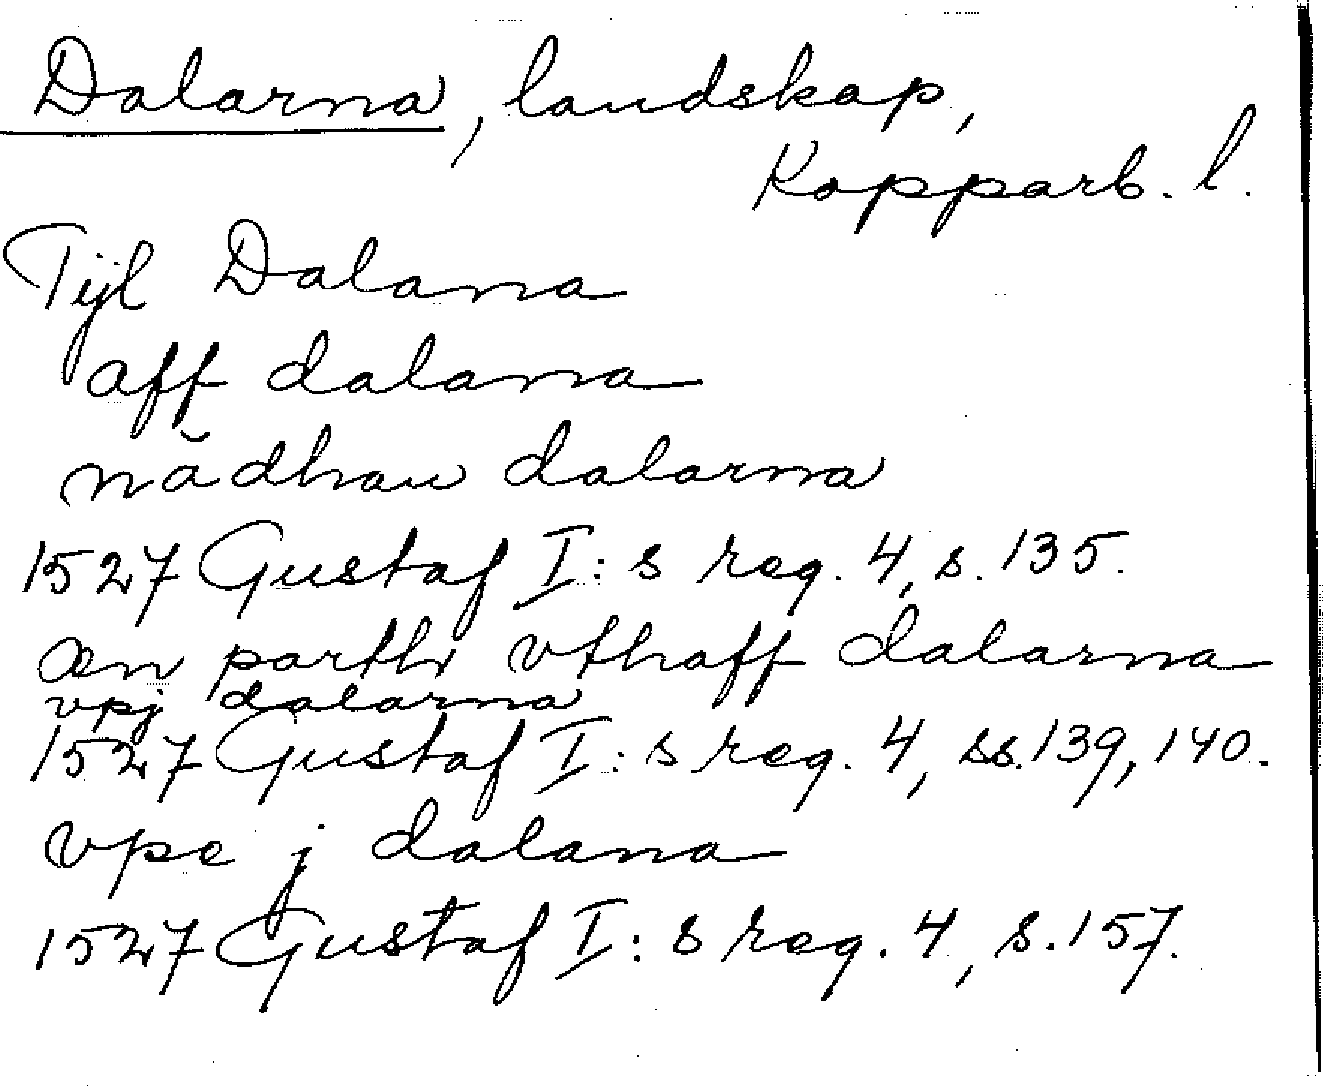 Dalarna, landskap,
Kopparb. l.
Tijl Dalana
aff dalana
nădhan dalarna
1527 Gustaf I:s reg. 4, s. 135.
æn parthi vthaff dalarna
vpj dalarna
1527 Gustaf I:s reg. 4, ss. 139, 140.
vpe j dalana
1527 Gustaf I:s reg. 4, s. 157.